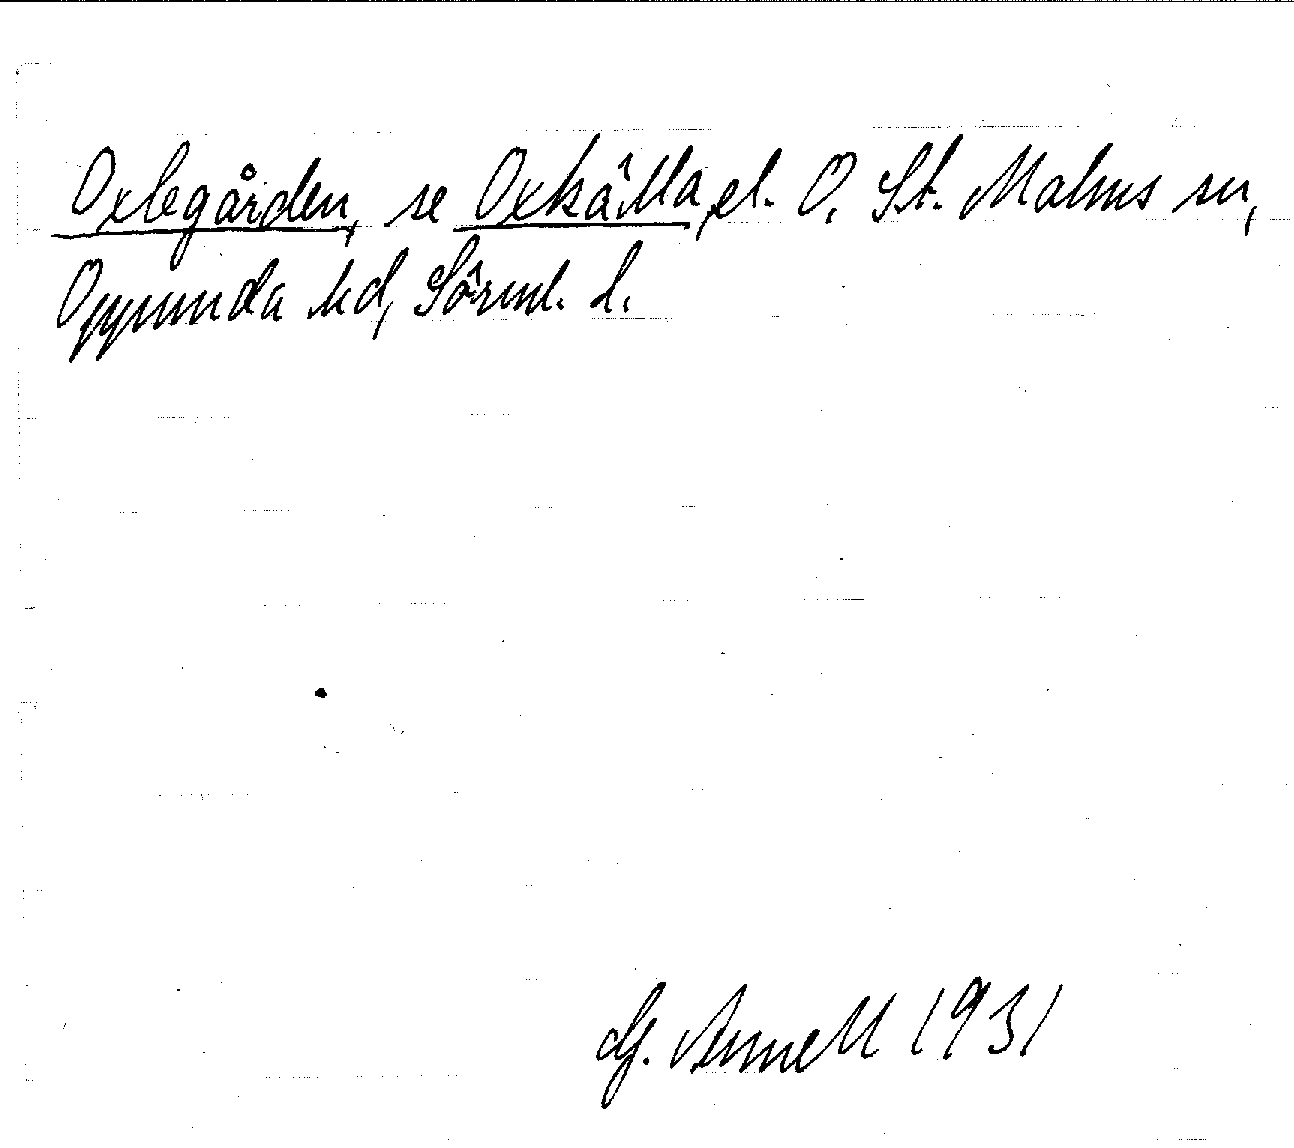 Oxlegården, se Oxkälla, el. O. St. Malms sn,
Oppunda hd, Sörml. l.
G. Arnell 1931